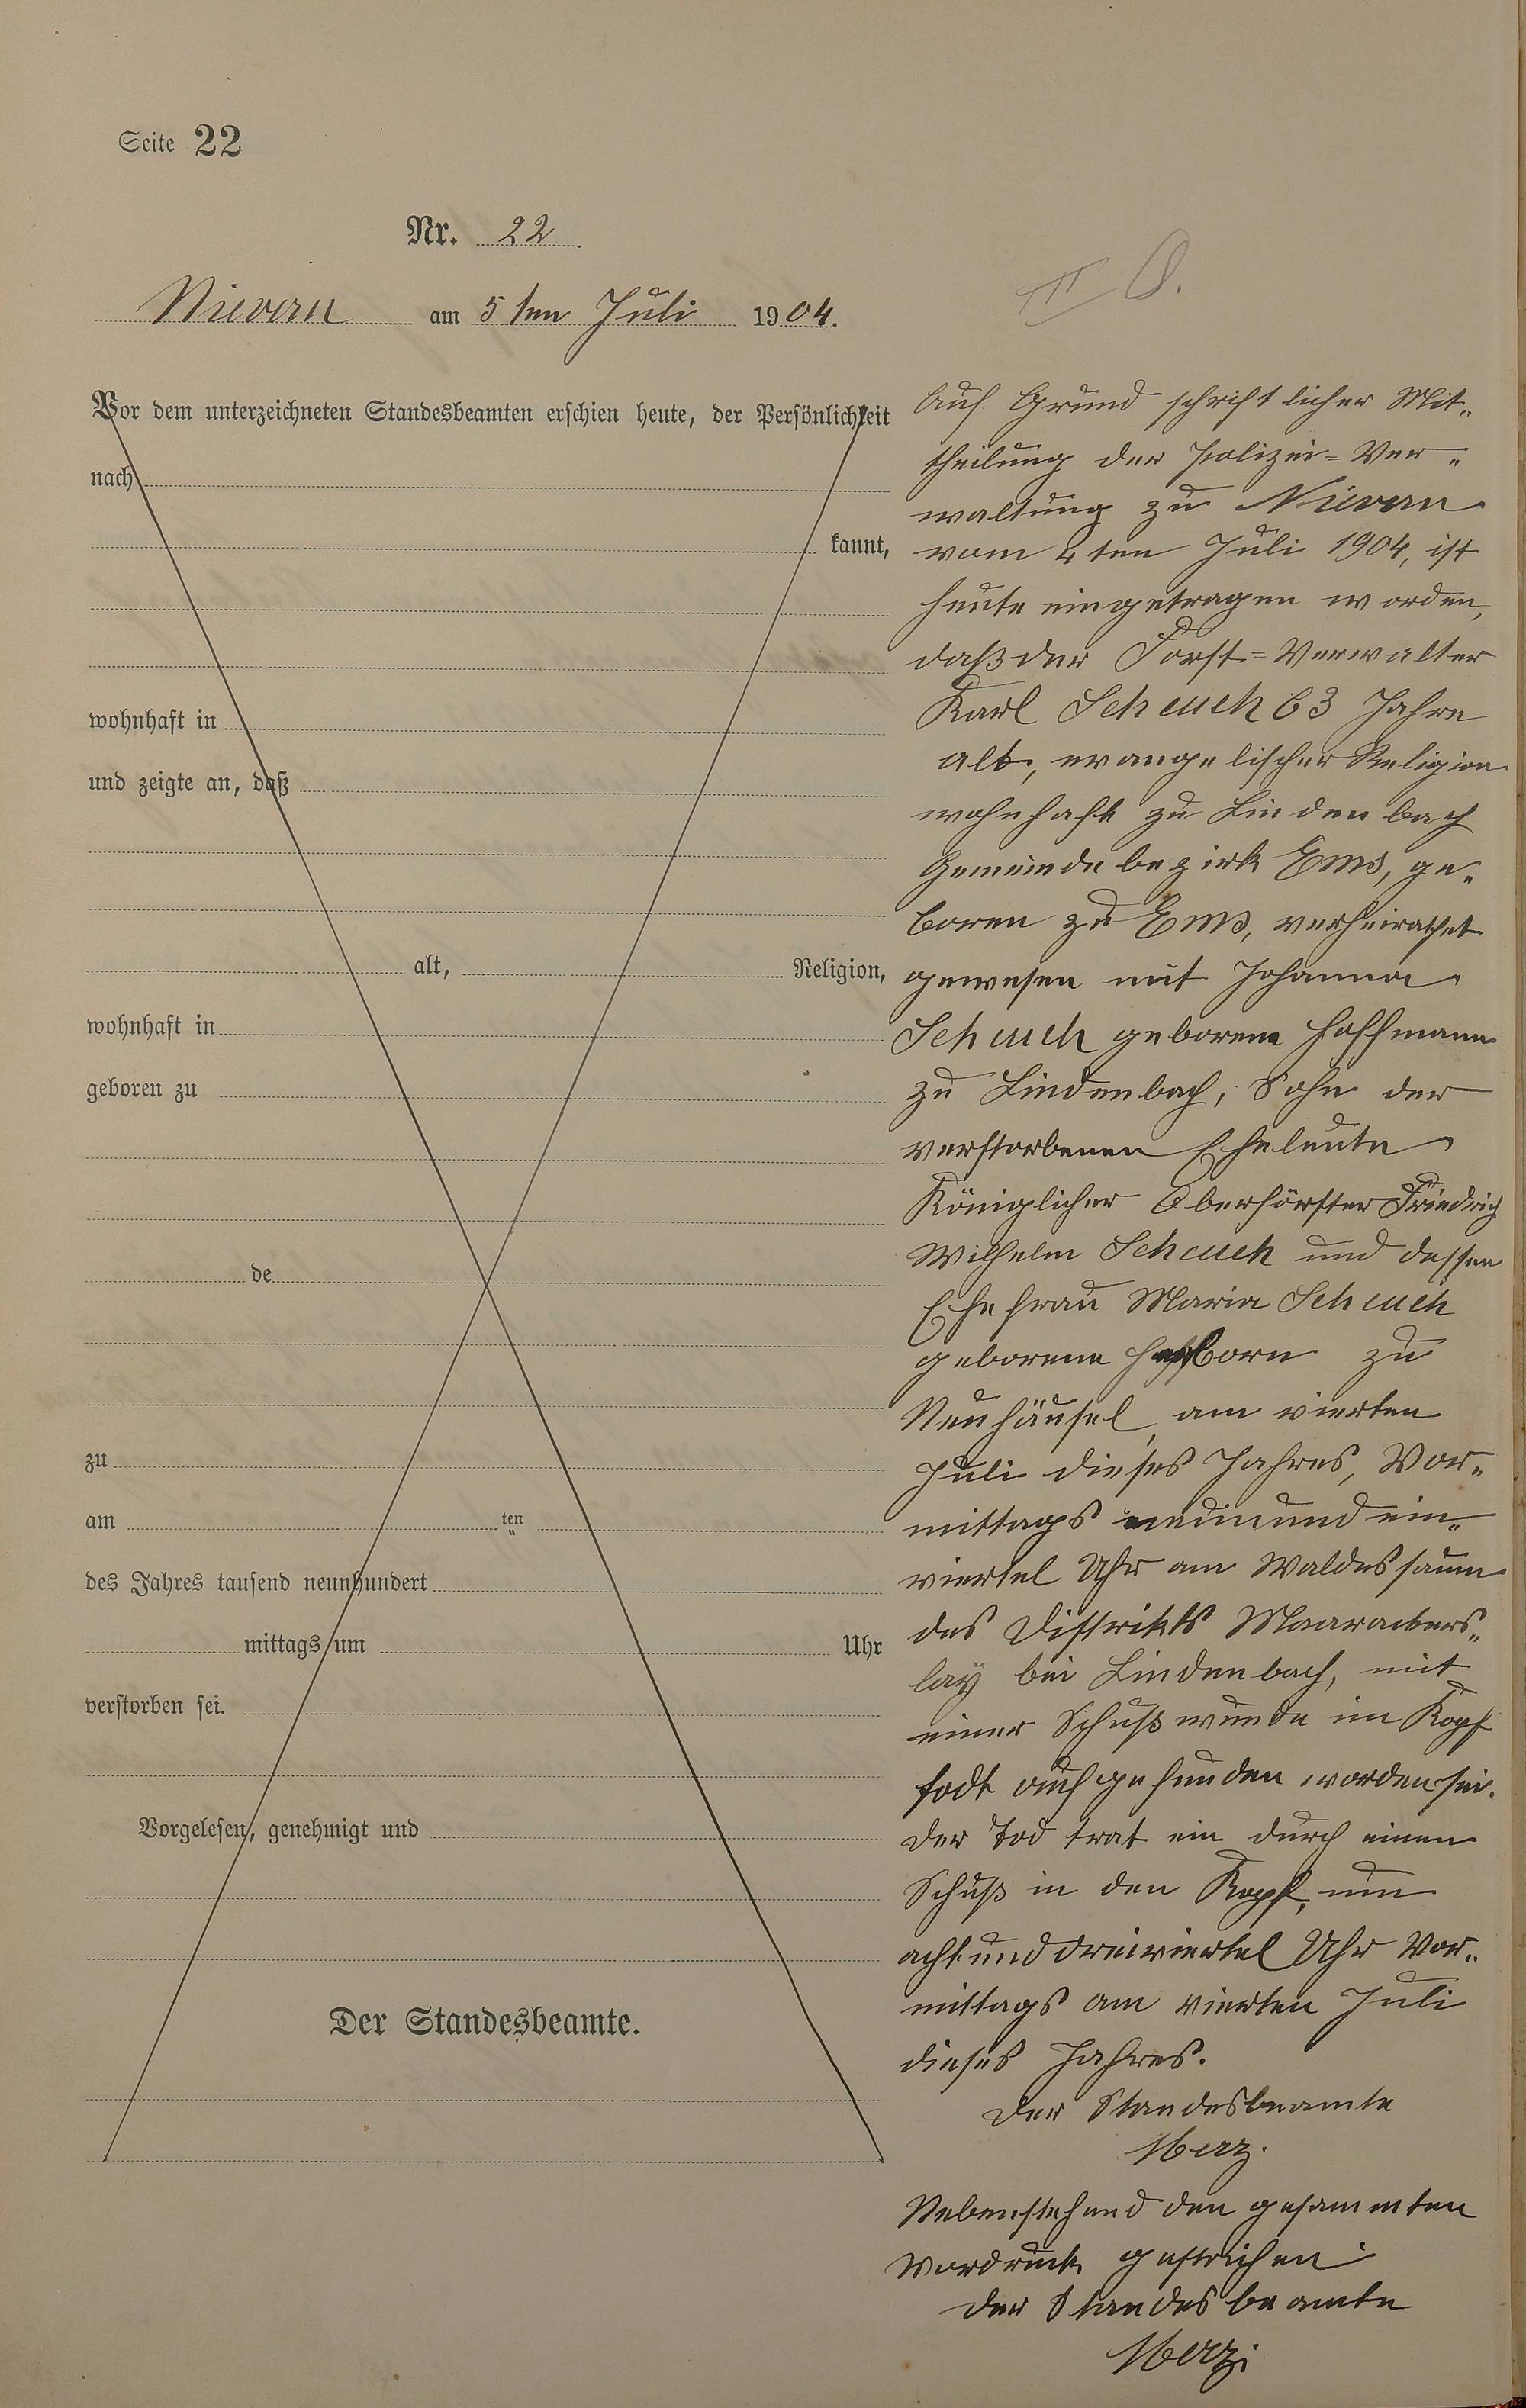 Seite 22
Nr. 22
Nievern am 5ten Juli 1904.
Vor dem unterzeichneten Standesbeamten erschien heute, der Persönlichkeit
nach
kannt,
wohnhaft in
und zeigte an, daß
alt, Religion,
wohnhaft in
geboren zu
de
zu
am ten
des Jahres tausend neunhundert
mittags um Uhr
verstorben sei.
Vorgelesen, genehmigt und
Der Standesbeamte.
Auf Grund schriftlicher Mit„
theilung der Polizei=Ver„
waltung zu Nievern
vom 4ten Juli 1904, ist
heute eingetragen worden,
daß der Forst=Verwalter
Karl Scheuch 63 Jahre
alt, evangelischer Religion
wohnhaft zu Lindenbach
Gemeindebezirk Ems, ge„
boren zu Ems, verheirathet
gewesen mit Johanna
Scheuch geborene Hoffmann
zu Lindenbach, Sohn der
verstorbenen Eheleute
Königlicher Oberförster Friedrich
Wilhelm Scheuch und dessen
Ehefrau Maria Scheuch
geborene zu
Neuhäusel, am vierten
Juli dieses Jahres, Vor„
mittags neunundein„
viertel Uhr am Waldessaum
des Distrikts Maarackers„
lay bei Lindenbach, mit
einer Schußwunde im Kopf
todt aufgefunden worden sei.
Der Tod trat ein durch einen
Schuß in den Kopf, um
achtunddreiviertel Uhr Vor„
mittags am vierten Juli
dieses Jahres.
Der Standesbeamte
Merz.
Nebenstehend den gesammten
Vordruck gestrichen
Der Standesbeamte
Merz.